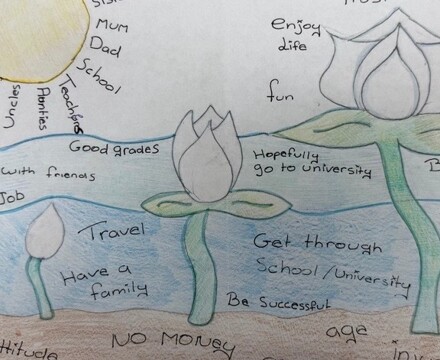 Mum
Dad
School
Teachers
Aunties
Uncles
enjoy
life
fun
Good grades
with friends
Job
Hopefully
go to university
Travel
Have a
family
Get through
School/University
Be Successful
NO MONEY
age